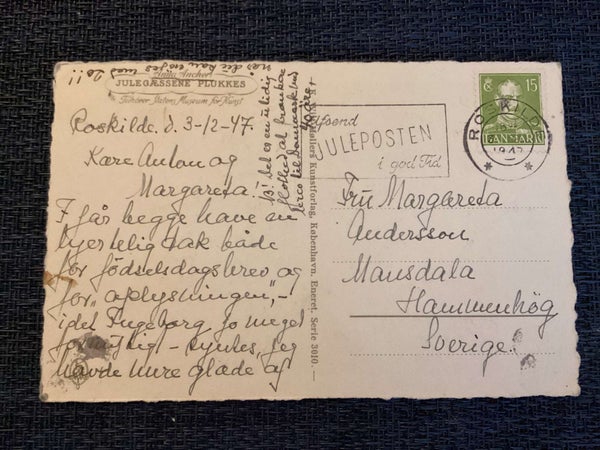 Anna Ancher:
JULEGÆSSENE PLUKKES
Tilhører Statens Museum for Kunst
Roskilde. d. 3-12-47.
Kære Anton og
Margareta.
I får begge have en
hjertelig tak både
for fødselsdagsbrev og
for „oplysningen", -
idet Ingeborg jo meget
fornuftig - syntes, jeg
havde mere glæde af
når du kan enes med
NB! Det er en utidig
at frankere
til Danmark
40 øre
Kunstforlag, København. Eneret. Serie 3010. —
Afsend
JULEPOSTEN
i god Tid
ROSKILDE
1947
15
DANMARK
Fru Margareta
Andersson
Mansdala
Hammenhög
Sverige.